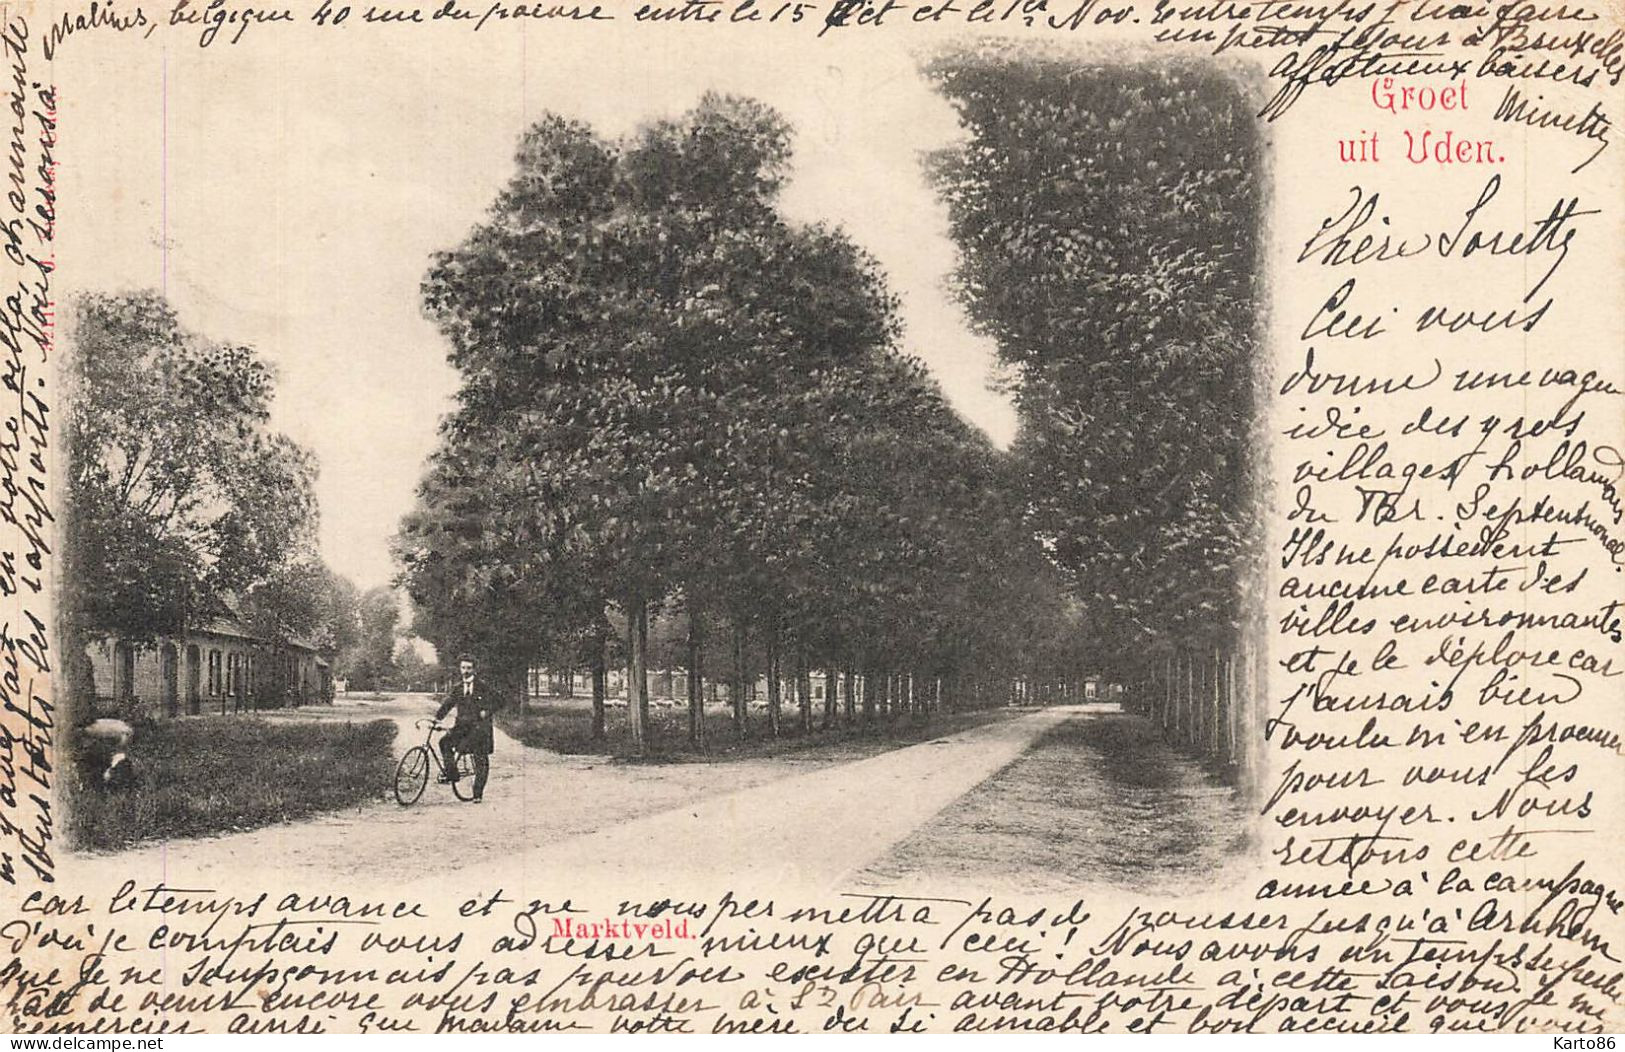 Groet
uit Uden.
Chère Lorette
Ceci vous
donne une vague
idée des gros
villages hollandais
du Septentrional.
Ils ne possèdent
aucune carte des
villes environnantes
et je le déplore car
j'aurais bien
voulu m'en procurer
pour vous les
envoyer. Nous
restons cette
année à la campagne
car le temps avance et ne nous permettra pas de pousser jusqu'à Arnhem
d'où je comptais vous adresser mieux que ceci! Nous avons un temps superbe
que je ne soupçonnais pas pouvoir exister en Hollande à cette saison. Je me
hâte de venir encore vous embrasser à St Pair avant votre départ et vous
remercier ainsi que madame votre mère du si aimable et bon accueil que vous
m'avez fait en votre villa, charmante
sous tous les rapports. Nous serons à
Malines, belgique 40 rue du poivre entre le 15 Oct et le 1er Nov. Entretemps j'irai faire
un petit séjour à Bruxelles
Affectueux baisers
Minette
Marktveld.
Karto86
delcampe.net